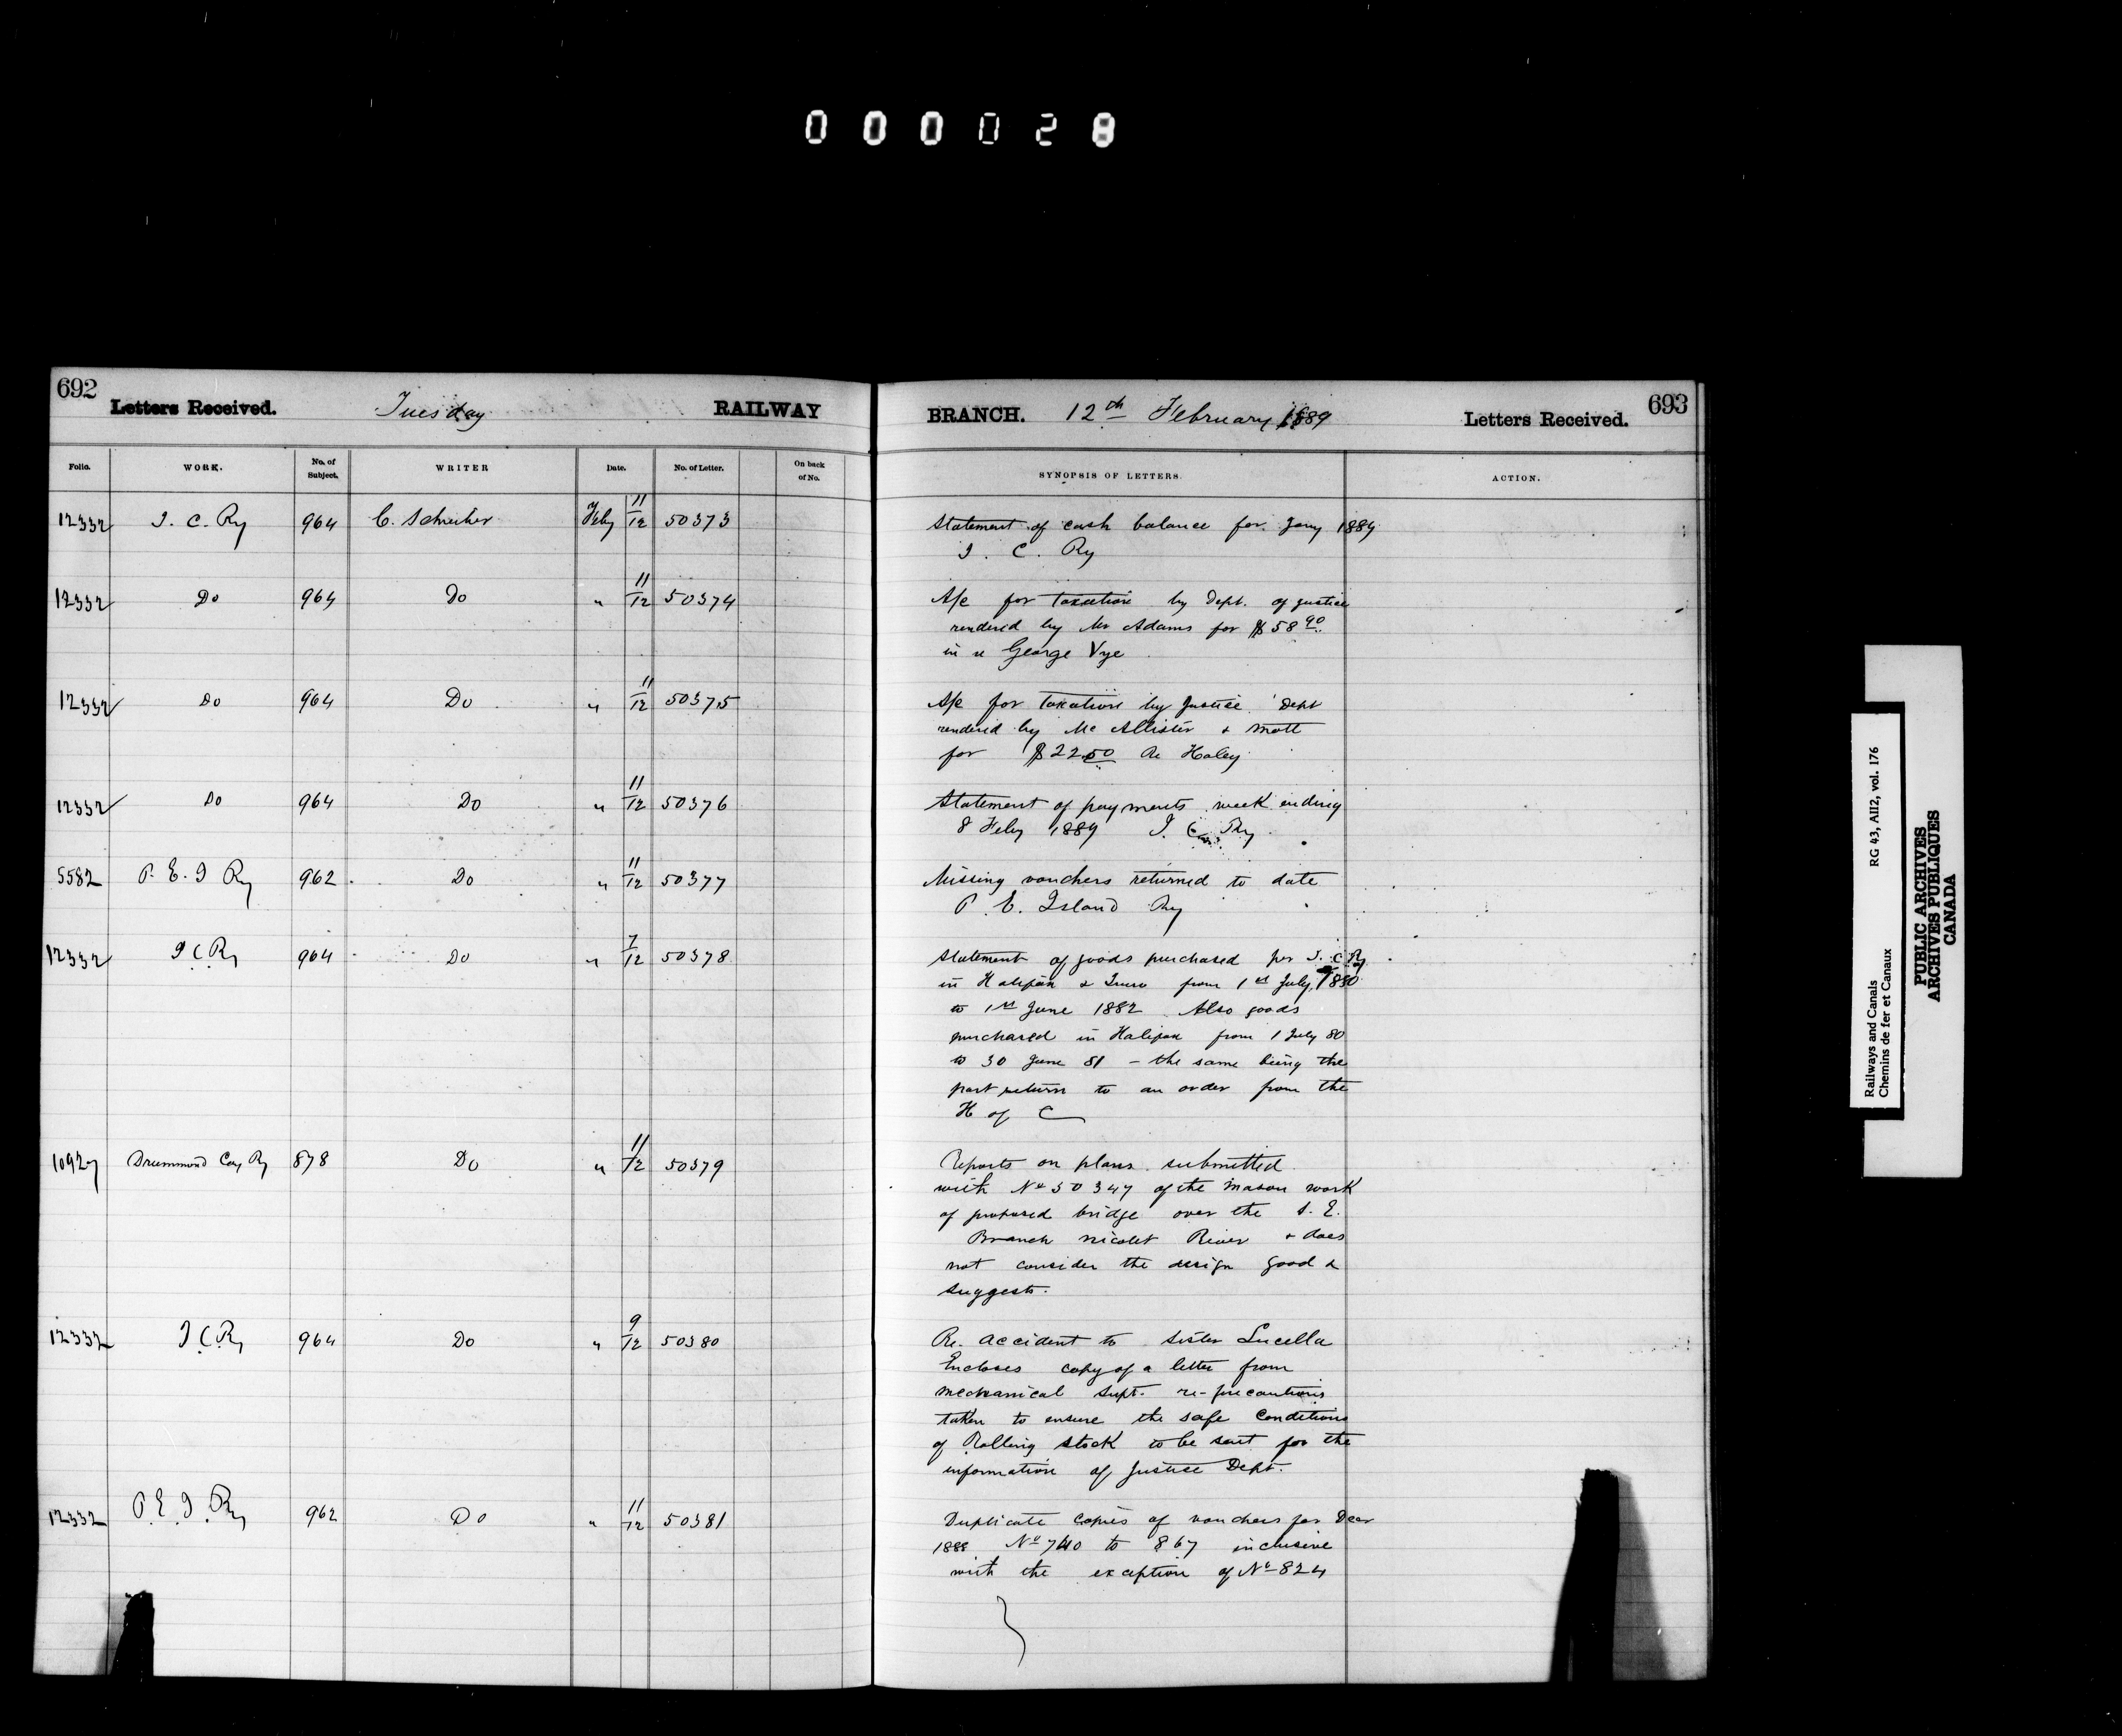 000028
692
Letters Received. Tuesday RAILWAY
BRANCH. 12th February 1889 Letters Received. 693
Folio. WORK. No. of Subject. WRITER Date. No. of Letter. On back of No.
SYNOPSIS OF LETTERS. ACTION.
12332 I. C. Ry 964 C. Schreiber Feby 11/12 50373
Statement of cash balance for Jany 1889
I. C. Ry
12332 Do 964 Do " 11/12 50374
A/c for taxation by Dept. of Justice
rendered by Mr Adams for $58.90
in re George Vye
12332 Do 964 Do " 11/12 50375
A/c for taxation by Justice Dept
rendered by McAllister & Mott
for $22.50 Re Haley
12332 Do 964 Do " 11/12 50376
Statement of payments week ending
8 Feby 1889 I. C. Ry
5582 P. E. I Ry 962 Do " 11/12 50377
Missing vouchers returned to date
P. E. Island Ry
12332 I C Ry 964 Do " 7/12 50378
Statement of goods purchased per I. C. Ry
in Halifax & Truro from 1st July, 1880
to 1st June 1882 Also goods
purchased in Halifax from 1 July 80
to 30 June 81 - the same being the
part return to an order from the
H of C
10927 Drummond Coy Ry 878 Do " 11/12 50379
Reports on plans submitted
with No 50347 of the mason work
of proposed bridge over the S. E.
Branch Nicolet River & does
not consider the design good &
suggests.
12332 I C Ry 964 Do " 9/12 50380
Re. accident to Sister Lucella
Encloses copy of a letter from
Mechanical Supt. re-precautions
taken to ensure the safe conditions
of Rolling stock to be sent for the
information of Justice Dept.
12332 P. E. I. Ry 962 Do " 11/12 50381
Duplicate copies of vouchers for Decr
1888 No 740 to 867 inclusive
with the exception of No 824
Railways and Canals RG 43, AII2, vol. 176
Chemins de fer et Canaux
PUBLIC ARCHIVES
ARCHIVES PUBLIQUES
CANADA